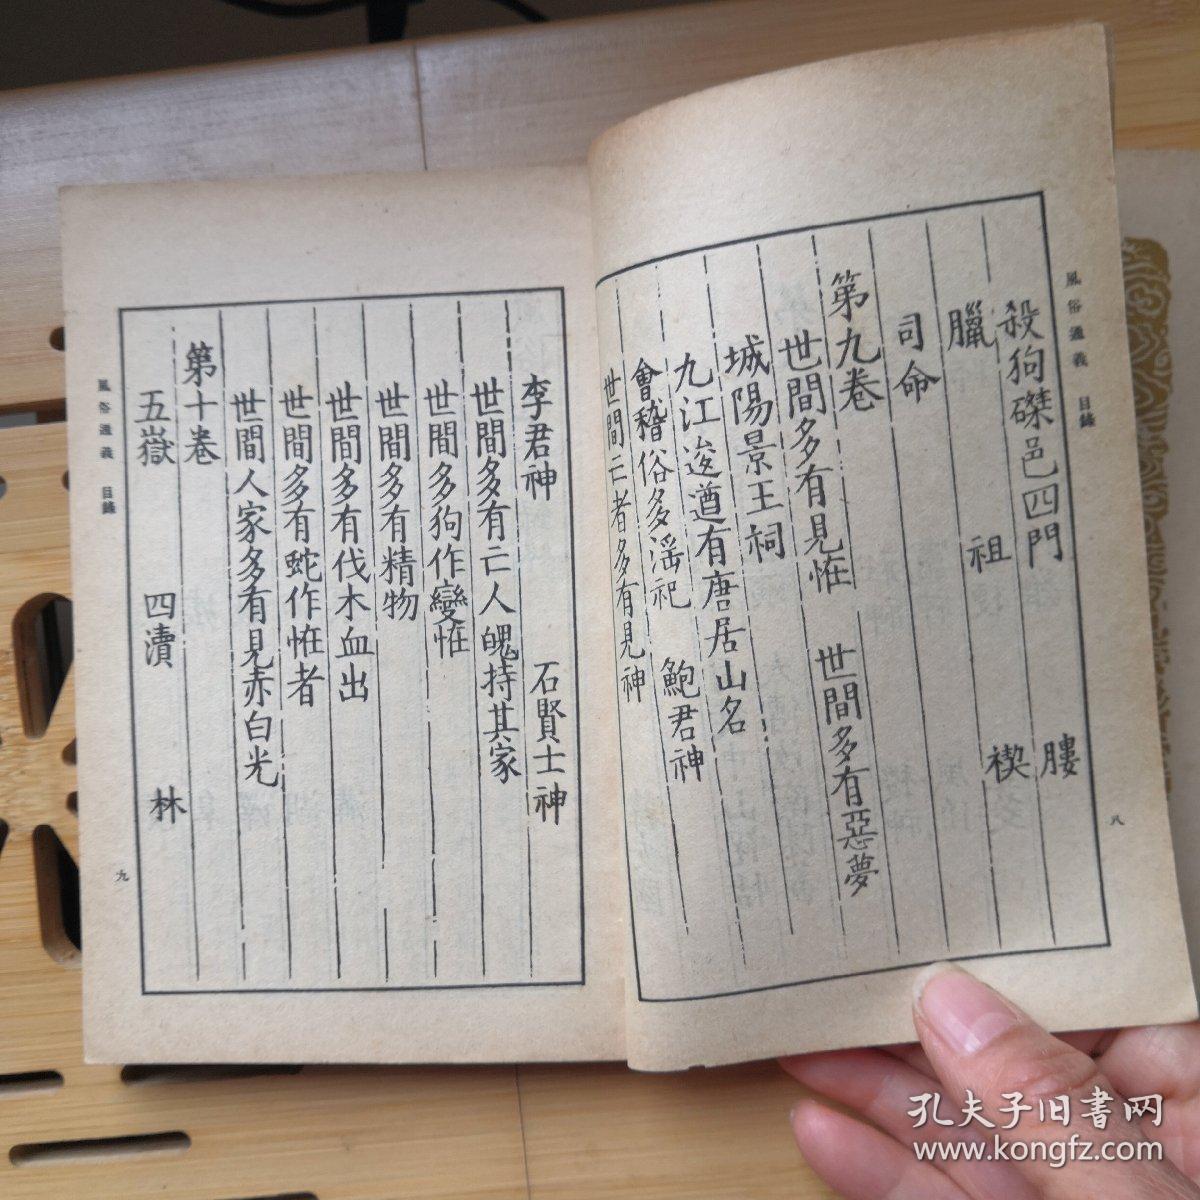 風俗通義 目錄
八
殺狗磔邑四門 膢
臘 祖 禊
司命
第九卷
世間多有見恠 世間多有惡夢
城陽景王祠
九江逡遒有唐居山名
會稽俗多淫祀 鮑君神
世間亡者多有見神
李君神 石賢士神
世間多有亡人魄持其家
世間多狗作變恠
世間多有精物
世間多有伐木血出
世間多有蛇作恠者
世間人家多有見赤白光
第十卷
五嶽 四瀆 林
風俗通義 目錄
九
孔夫子旧书网
www.kongfz.com